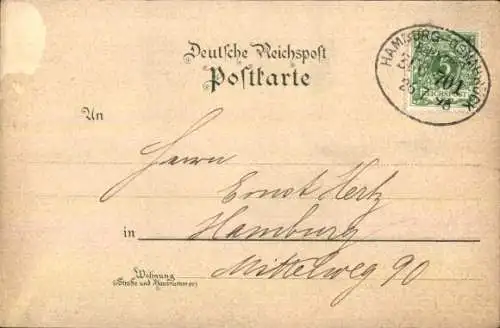 Deutsche Reichspost
Postkarte
HAMBURG-OSNABRÜCK
701
98
5
REICHSPOST
An
Herrn
Ernst Hertz
in Hamburg
Wohnung
(Straße und Hausnummer)
Mittelweg 90